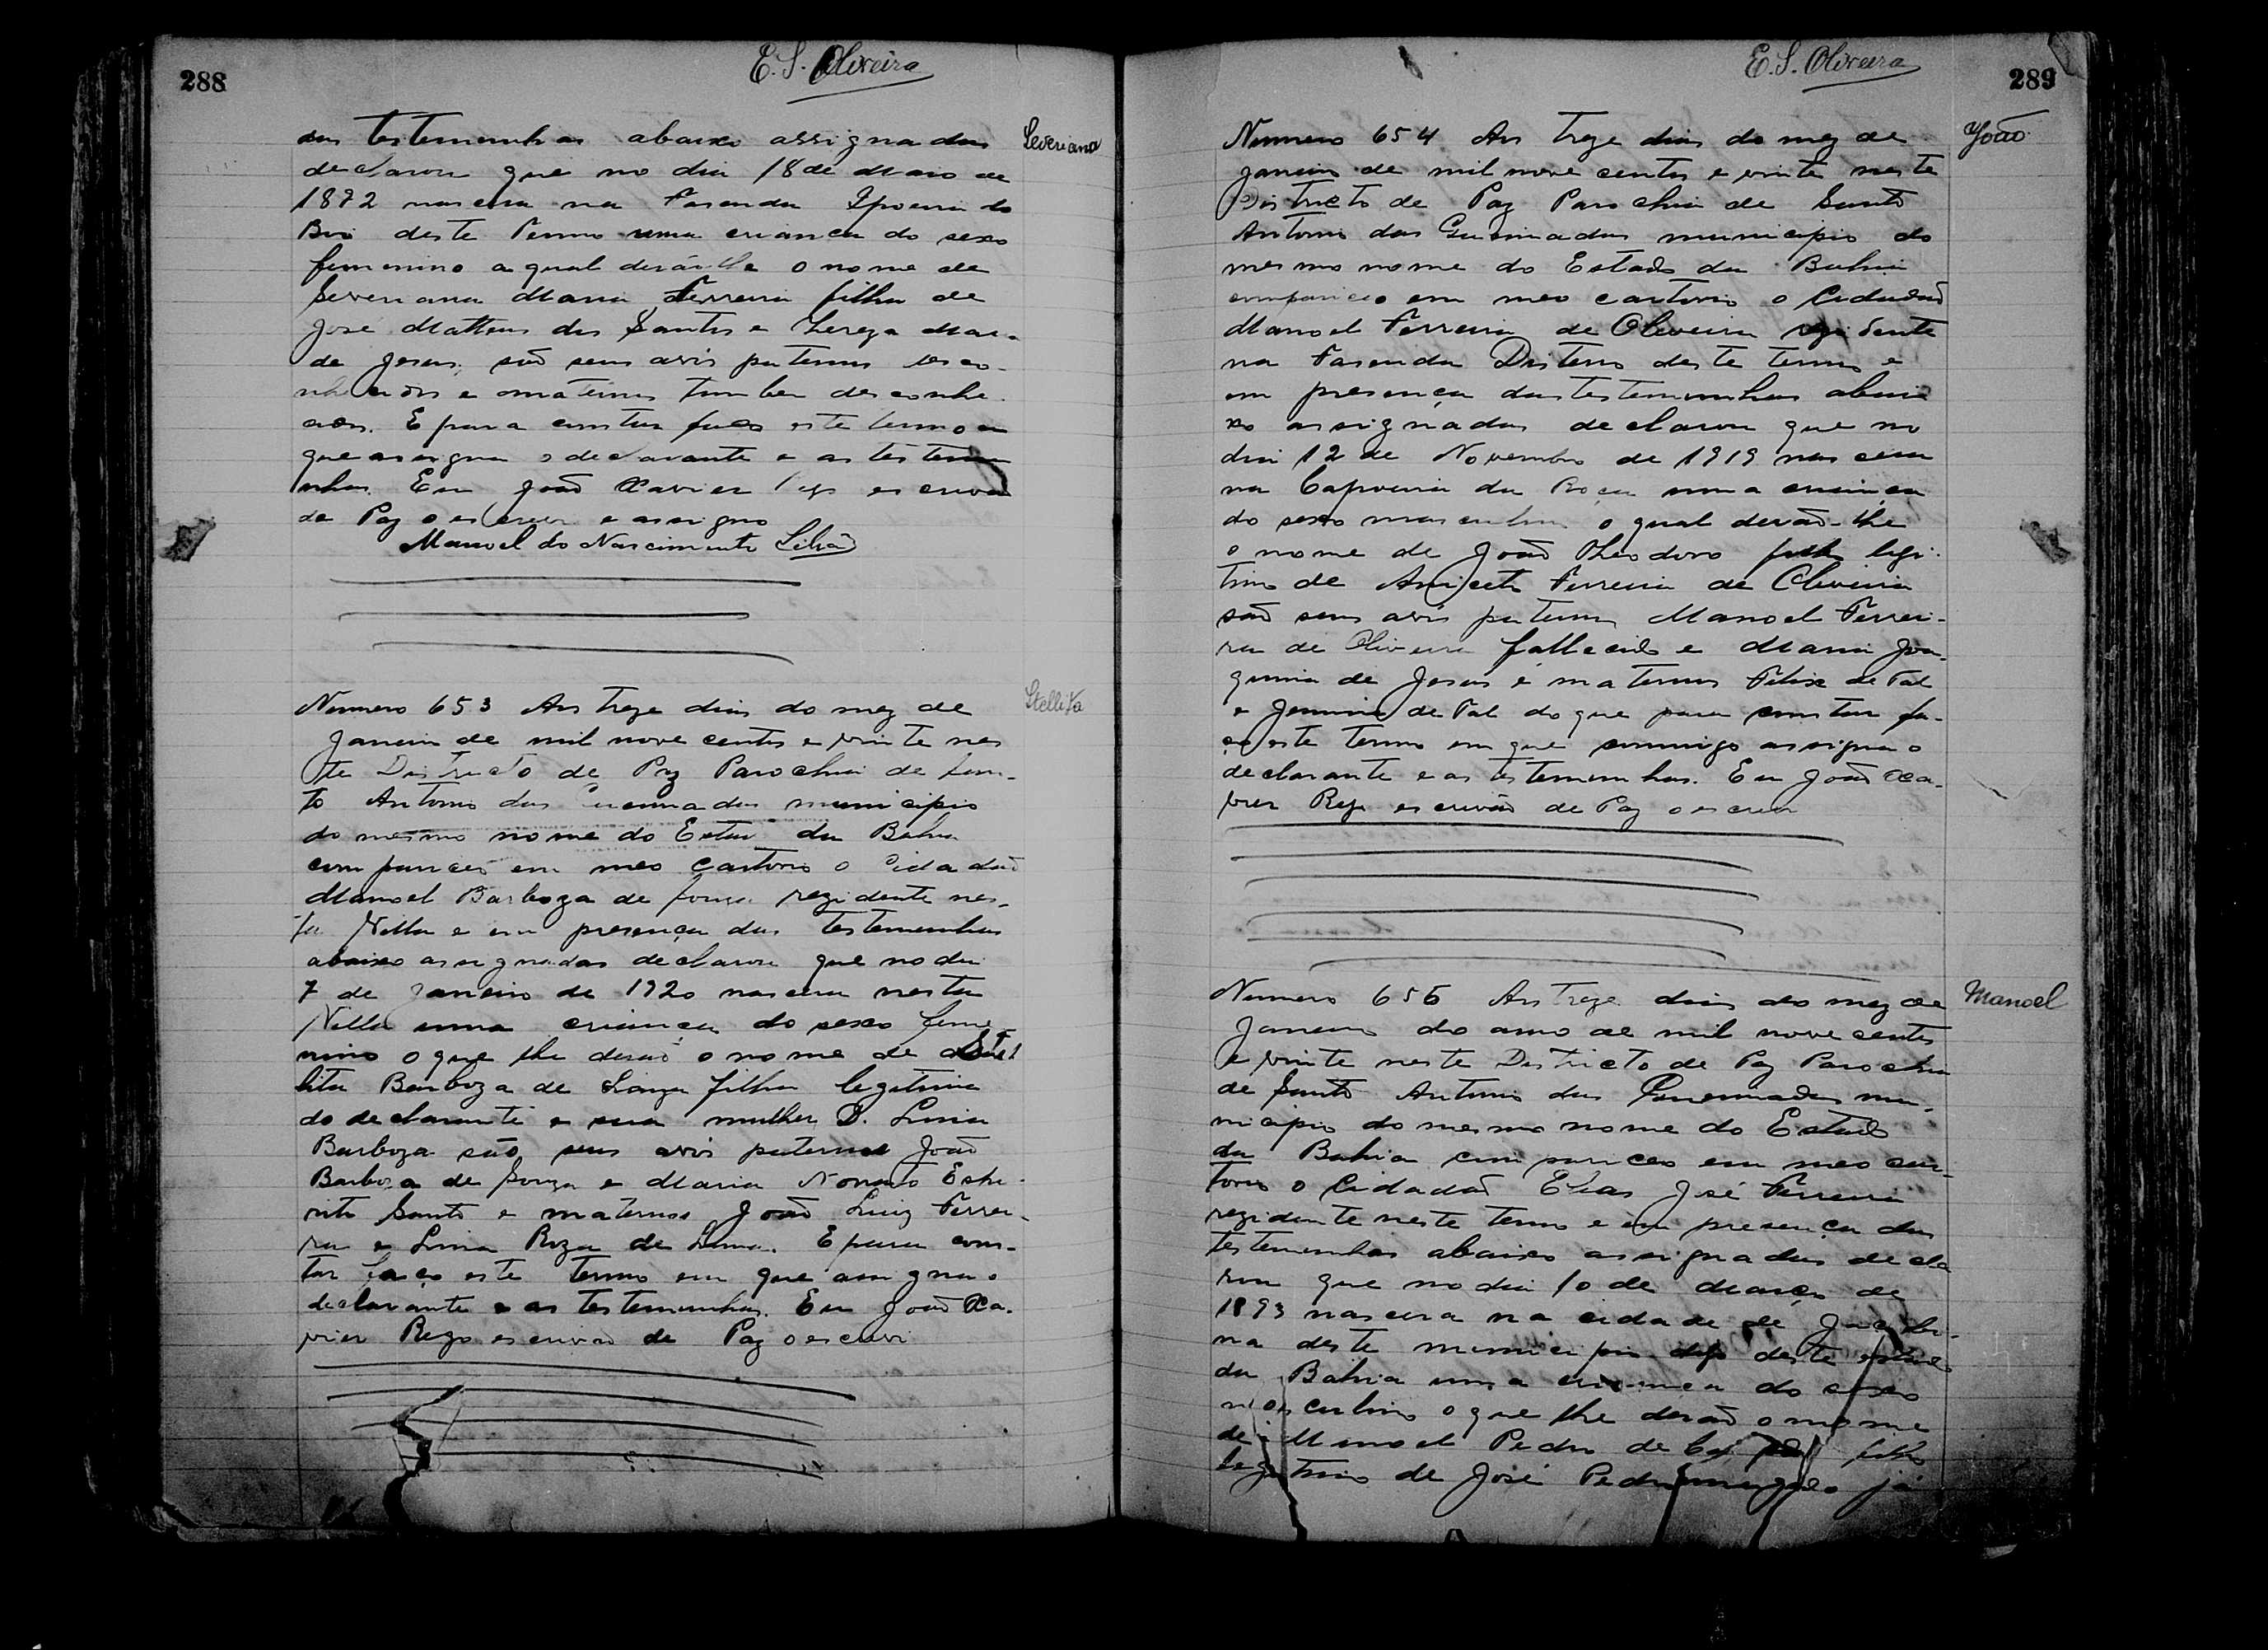 288
E. S. Oliveira
das testemunhas abaixo assignadas
Severiana
declarou que no dia 18 de Maio de
1872 nascera na Fasenda Ipoeira do
Boi deste Termo uma criança do sexo
feminino a qual derão lhe o nome de
Severiana Maria Ferreira filha de
José Matteus dos Santos e Thereza Mar
de Jesus, são seus avós paternos desco-
nhecidos e maternos tambem desconhe
cidos. E para constar faço este termo em
que assigna o declarante e as testemu
nhas. Eu João Xavier Rego escrivão
de Paz o escrevi e assigno
Manoel do Nascimento
Numero 653 Aos treze dias do mez de
Stellita
Janeiro de mil nove centos e vinte nes
te Districto de Paz Parochia de San-
to Antonio das Queimadas municipio
do mesmo nome do Estado da Bahia
compareceo em meo cartorio o Cidadão
Manoel Barboza de Souza rezidente nes-
ta Villa e em presença das testemunhas
abaixo assignadas declarou que no dia
7 de Janeiro de 1920 nascera nesta
Villa uma criança do sexo femi
nino o que lhe derão o nome de Stel
lita Barboza de Souza filha legitima
do declarante e sua mulher D. Lina
Barboza são seus avós paternos João
Barboza de Souza e Maria Nonato Espi-
rito Santo e maternos João Luiz Ferrei-
ra e Lina Roza de Lima. E para cons-
tar faço este termo em que assigna o
declarante e as testemunhas. Eu João Xa-
vier Rego escrivão de Paz o escrevi
E. S. Oliveira
289
Numero 654 Aos treze dias do mez de
João
Janeiro de mil nove centos e vinte neste
Districto de Paz Parochia de Santo
Antonio das Queimadas municipio do
mesmo nome do Estado da Bahia
compareceo em meo cartorio o Cidadão
Manoel Ferreira de Oliveira rezidente
na Fasenda Desterro deste termo e
em presença das testemunhas abai
xo assignadas declarou que no
dia 12 de Novembro de 1919 nascera
na Capoeira da Roça uma criança
do sexo masculino o qual derão-lhe
o nome de João Theodoro filho legi-
timo de Aniceto Ferreira de Oliveira
são seus avós paternos Manoel Ferrei-
ra de Oliveira fallecido e Maria Joa-
quina de Jesus e maternos Felix de Tal
e Jemina de Tal do que para constar fa-
ço este termo em que commigo assigna o
declarante e as testemunhas. Eu João Xa-
vier Rego escrivão de Paz o escrevi
Numero 655 Aos treze dias do mez de
Manoel
Janeiro do anno de mil nove centos
e vinte neste Districto de Paz Parochia
de Santo Antonio das Queimadas mu-
nicipio do mesmo nome do Estado
da Bahia compareceo em meo car-
torio o Cidadão Elias José Ferreira
rezidente neste termo e em presença das
testemunhas abaixo assignadas decla
rou que no dia 10 de Março de
1893 nascera na cidade de Jacobi-
na deste municipio digo deste estado
da Bahia uma criança do sexo
masculino o que lhe derão o nome
de Manoel Pedro de filho
legitimo de José Pedro já